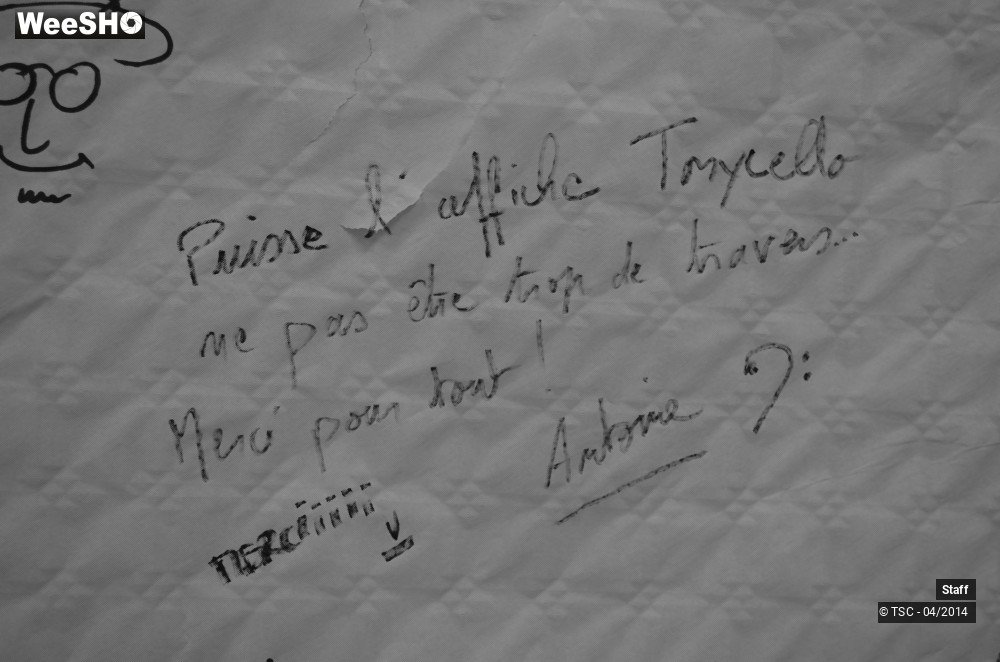 WeeSHO
Puisse l'affiche Tonycello
ne pas être trop de travers...
Merci pour tout !
Antoine
MERCiiiiii
Staff
© TSC - 04/2014